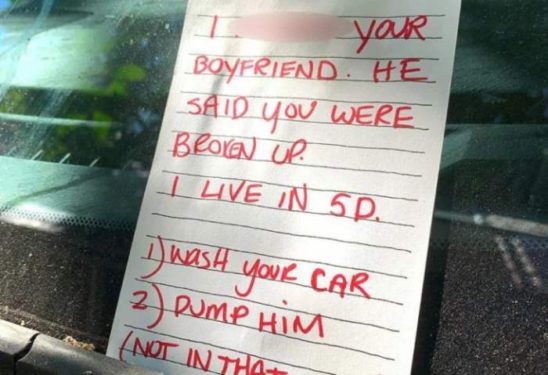 I YOUR
BOYFRIEND. HE
SAID YOU WERE
BROKEN UP.
I LIVE IN 5D.
1) WASH YOUR CAR
2) DUMP HIM
(NOT IN THAT